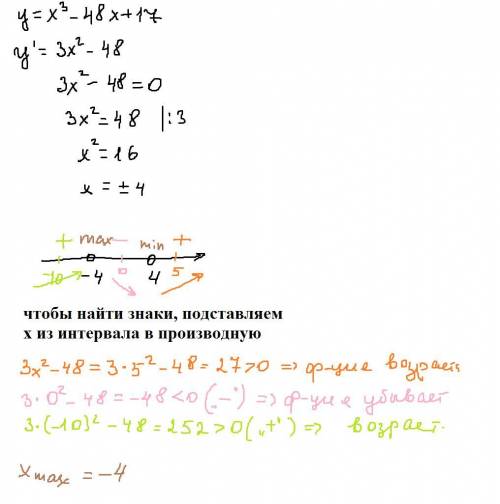 y = x³ - 48x + 17
y' = 3x² - 48
3x² - 48 = 0
3x² = 48 |:3
x² = 16
x = ± 4
+ max - min +
-10 -4 0 4 5
чтобы найти знаки, подставляем
х из интервала в производную
3x² - 48 = 3·5² - 48 = 27 > 0 => ф-ция возрает
3·0² - 48 = -48 < 0 („-") => ф-ция убывает
3·(-10)² - 48 = 252 > 0 („+") => возрает.
x max = -4